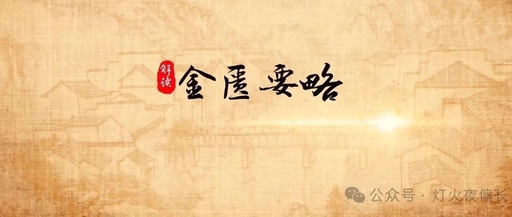 解读
金匮要略
公众号 · 灯火夜偏长